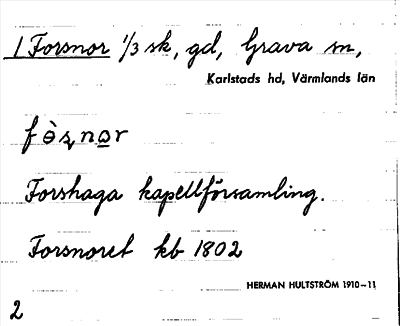 1 Forsnor 1/3 sk, gd, Grava sn,
Karlstads hd, Värmlands län
fɵ̀ʂnɑ̲r
Forshaga kapellförsamling.
Forsnoret kb 1802
HERMAN HULTSTRÖM 1910-11
2